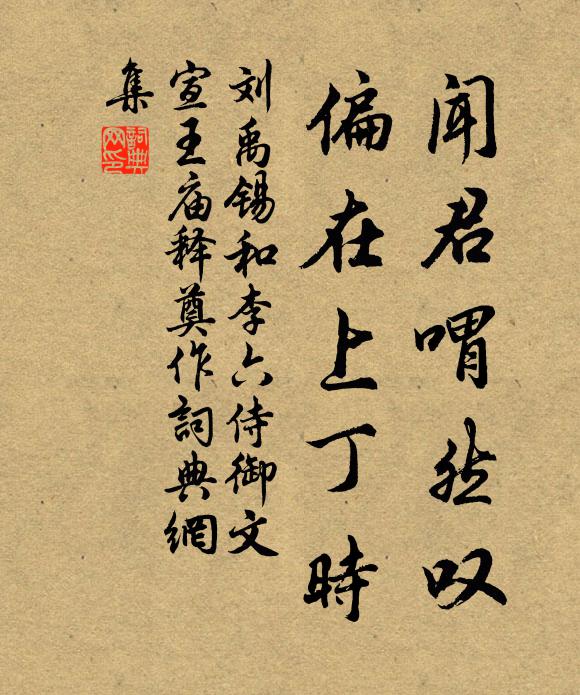 闻君喟然叹
偏在上丁時
刘禹锡和李六侍御文
宣王庙释奠作詞典網
集
詞典網印